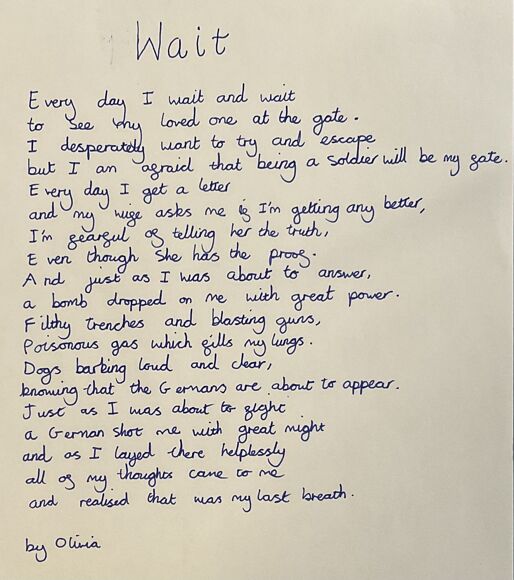 Wait
Every day I wait and wait
to see my loved one at the gate.
I desperately want to try and escape
but I am afraid that being a soldier will be my fate.
Every day I get a letter
and my wife asks me if I'm getting any better,
I'm fearful of telling her the truth,
Even though she has the proof.
And just as I was about to answer,
a bomb dropped on me with great power.
Filthy trenches and blasting guns,
Poisonous gas which fills my lungs.
Dogs barking loud and clear,
knowing that the Germans are about to appear.
Just as I was about to fight
a German shot me with great might
and as I layed there helplessly
all of my thoughts came to me
and realised that was my last breath.
by Olivia